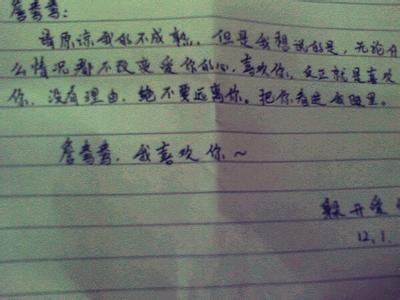 詹莺莺:
请原谅我的不成熟。但是我想说的是,无论什
么情况都不改变爱你的心,喜欢你,反正就是喜欢
你,没有理由,绝不要远离你。把你看进我眼里。
詹莺莺,我喜欢你~
开爱
12.1.